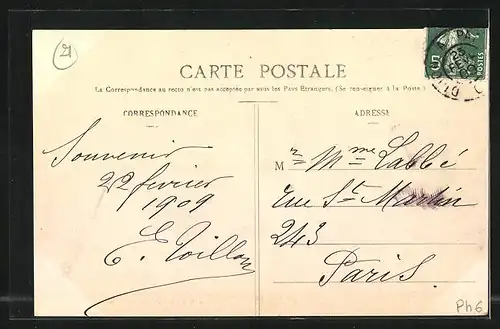 21
CARTE POSTALE
La Correspondance au recto n'est pas acceptée par tous les Pays Etrangers. (Se renseigner à la Poste)
CORRESPONDANCE
ADRESSE
Souvenir
22 février
1909
E. Toillon
M r Mme Labbé
rue St Martin
243
Paris.
5
POSTES
Ph6